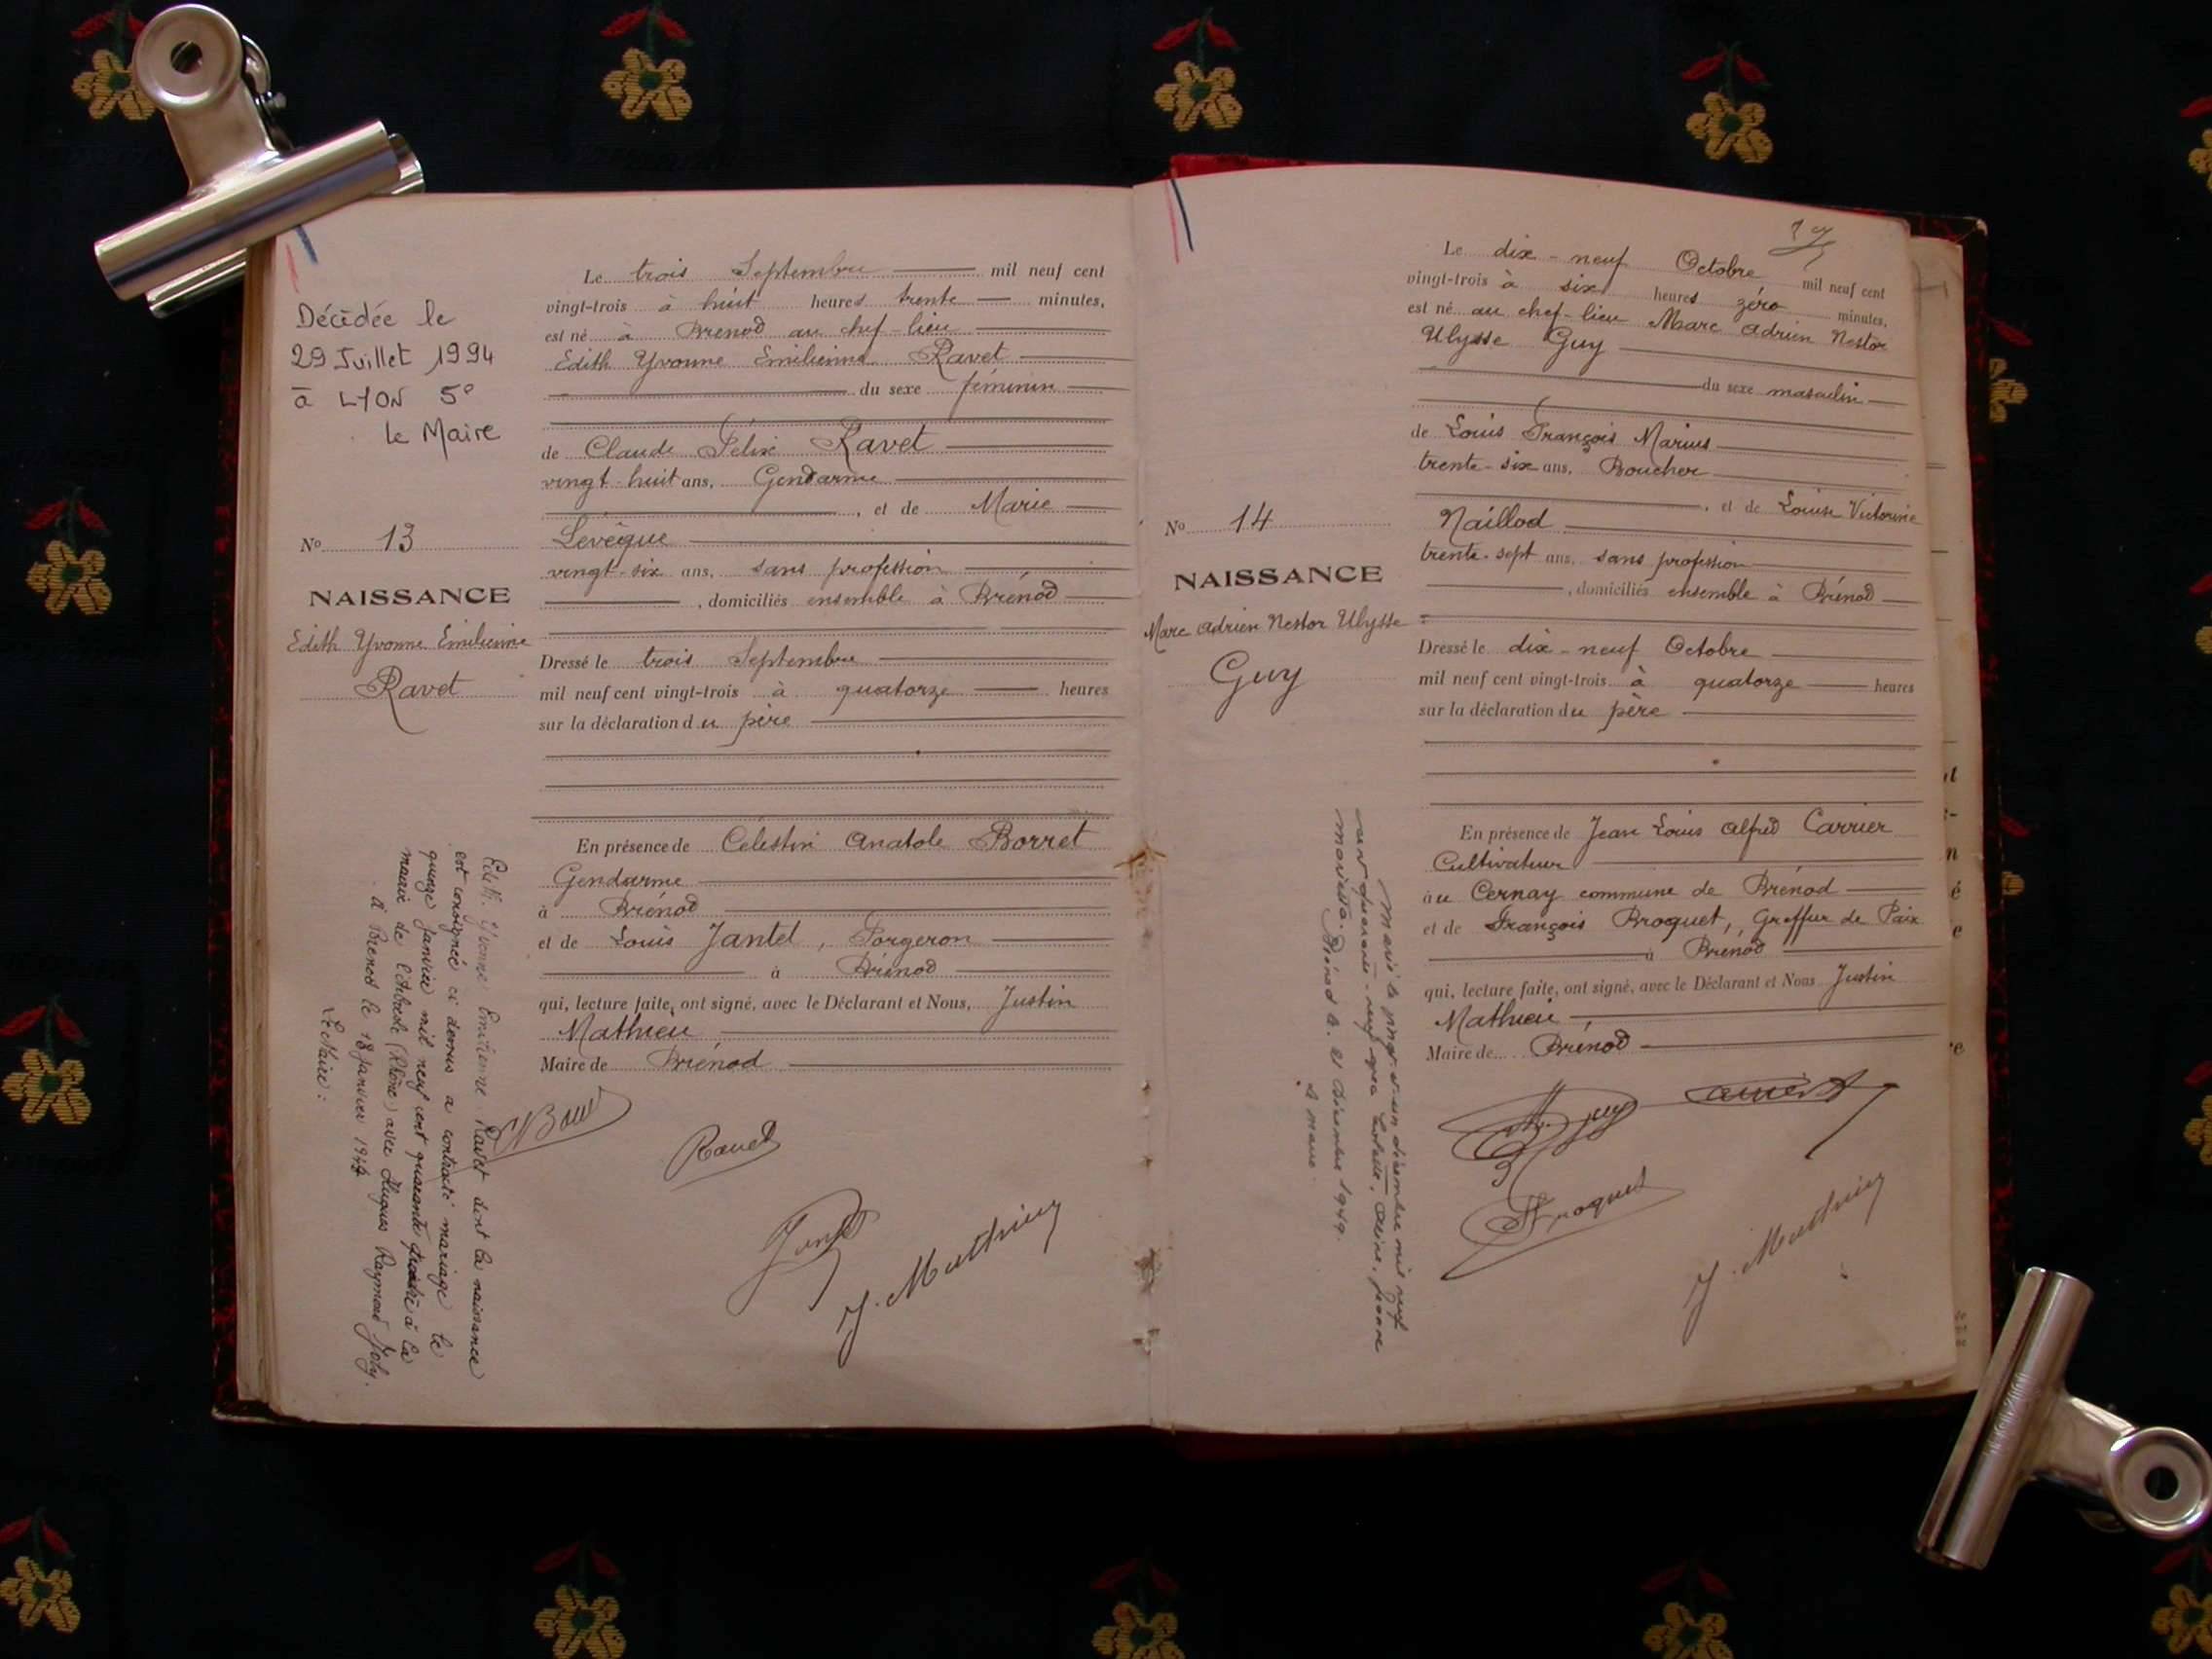 Décédée le
29 Juillet 1994
à LYON 5°
le Maire
No 13
NAISSANCE
Edith Yvonne Emilienne
Ravet
Edith Yvonne Emilienne Ravet dont la naissance
est consignée ci dessus a contracté mariage le
quinze Janvier mil neuf cent quarante quatre à la
mairie de (Rhône) avec Hugues Raymond Joly.
à Brenod le 18 Janvier 1944
Le Maire :
Le trois Septembre mil neuf cent
vingt-trois à huit heures trente minutes,
est né à Brenod au chef-lieu
Edith Yvonne Emilienne Ravet
du sexe féminin
de Claude Félix Ravet
vingt-huit ans, Gendarme
, et de Marie
Levêque
vingt-six ans, sans profession
, domiciliés ensemble à Brénod
Dressé le trois Septembre
mil neuf cent vingt-trois à quatorze heures
sur la déclaration du père
En présence de Célestin Anatole Borret
Gendarme
à Brénod
et de Louis Jantet, Forgeron
à Brénod
qui, lecture faite, ont signé, avec le Déclarant et Nous, Justin
Mathieu
Maire de Brénod
Ravet
J. Mathieu
No 14
NAISSANCE
Marc Adrien Nestor Ulysse
Guy
Marié le vingt-et-un décembre mil neuf
cent quarante-neuf avec
Brénod le 21 décembre 1949.
Le maire
Le dix-neuf Octobre mil neuf cent
vingt-trois à six heures zéro minutes,
est né au chef-lieu Marc Adrien Nestor
Ulysse Guy
du sexe masculin
de Louis François Marius
trente-six ans, Boucher
, et de Louise Victorine
Naillod
trente-sept ans, sans profession
, domiciliés ensemble à Brénod
Dressé le dix-neuf Octobre
mil neuf cent vingt-trois à quatorze heures
sur la déclaration du père
En présence de Jean Louis Alfred Carrier
Cultivateur
à au Cernay commune de Brénod
et de François Broquet, Greffier de Paix
à Brénod
qui, lecture faite, ont signé, avec le Déclarant et Nous Justin
Mathieu
Maire de Brénod
J. Mathieu